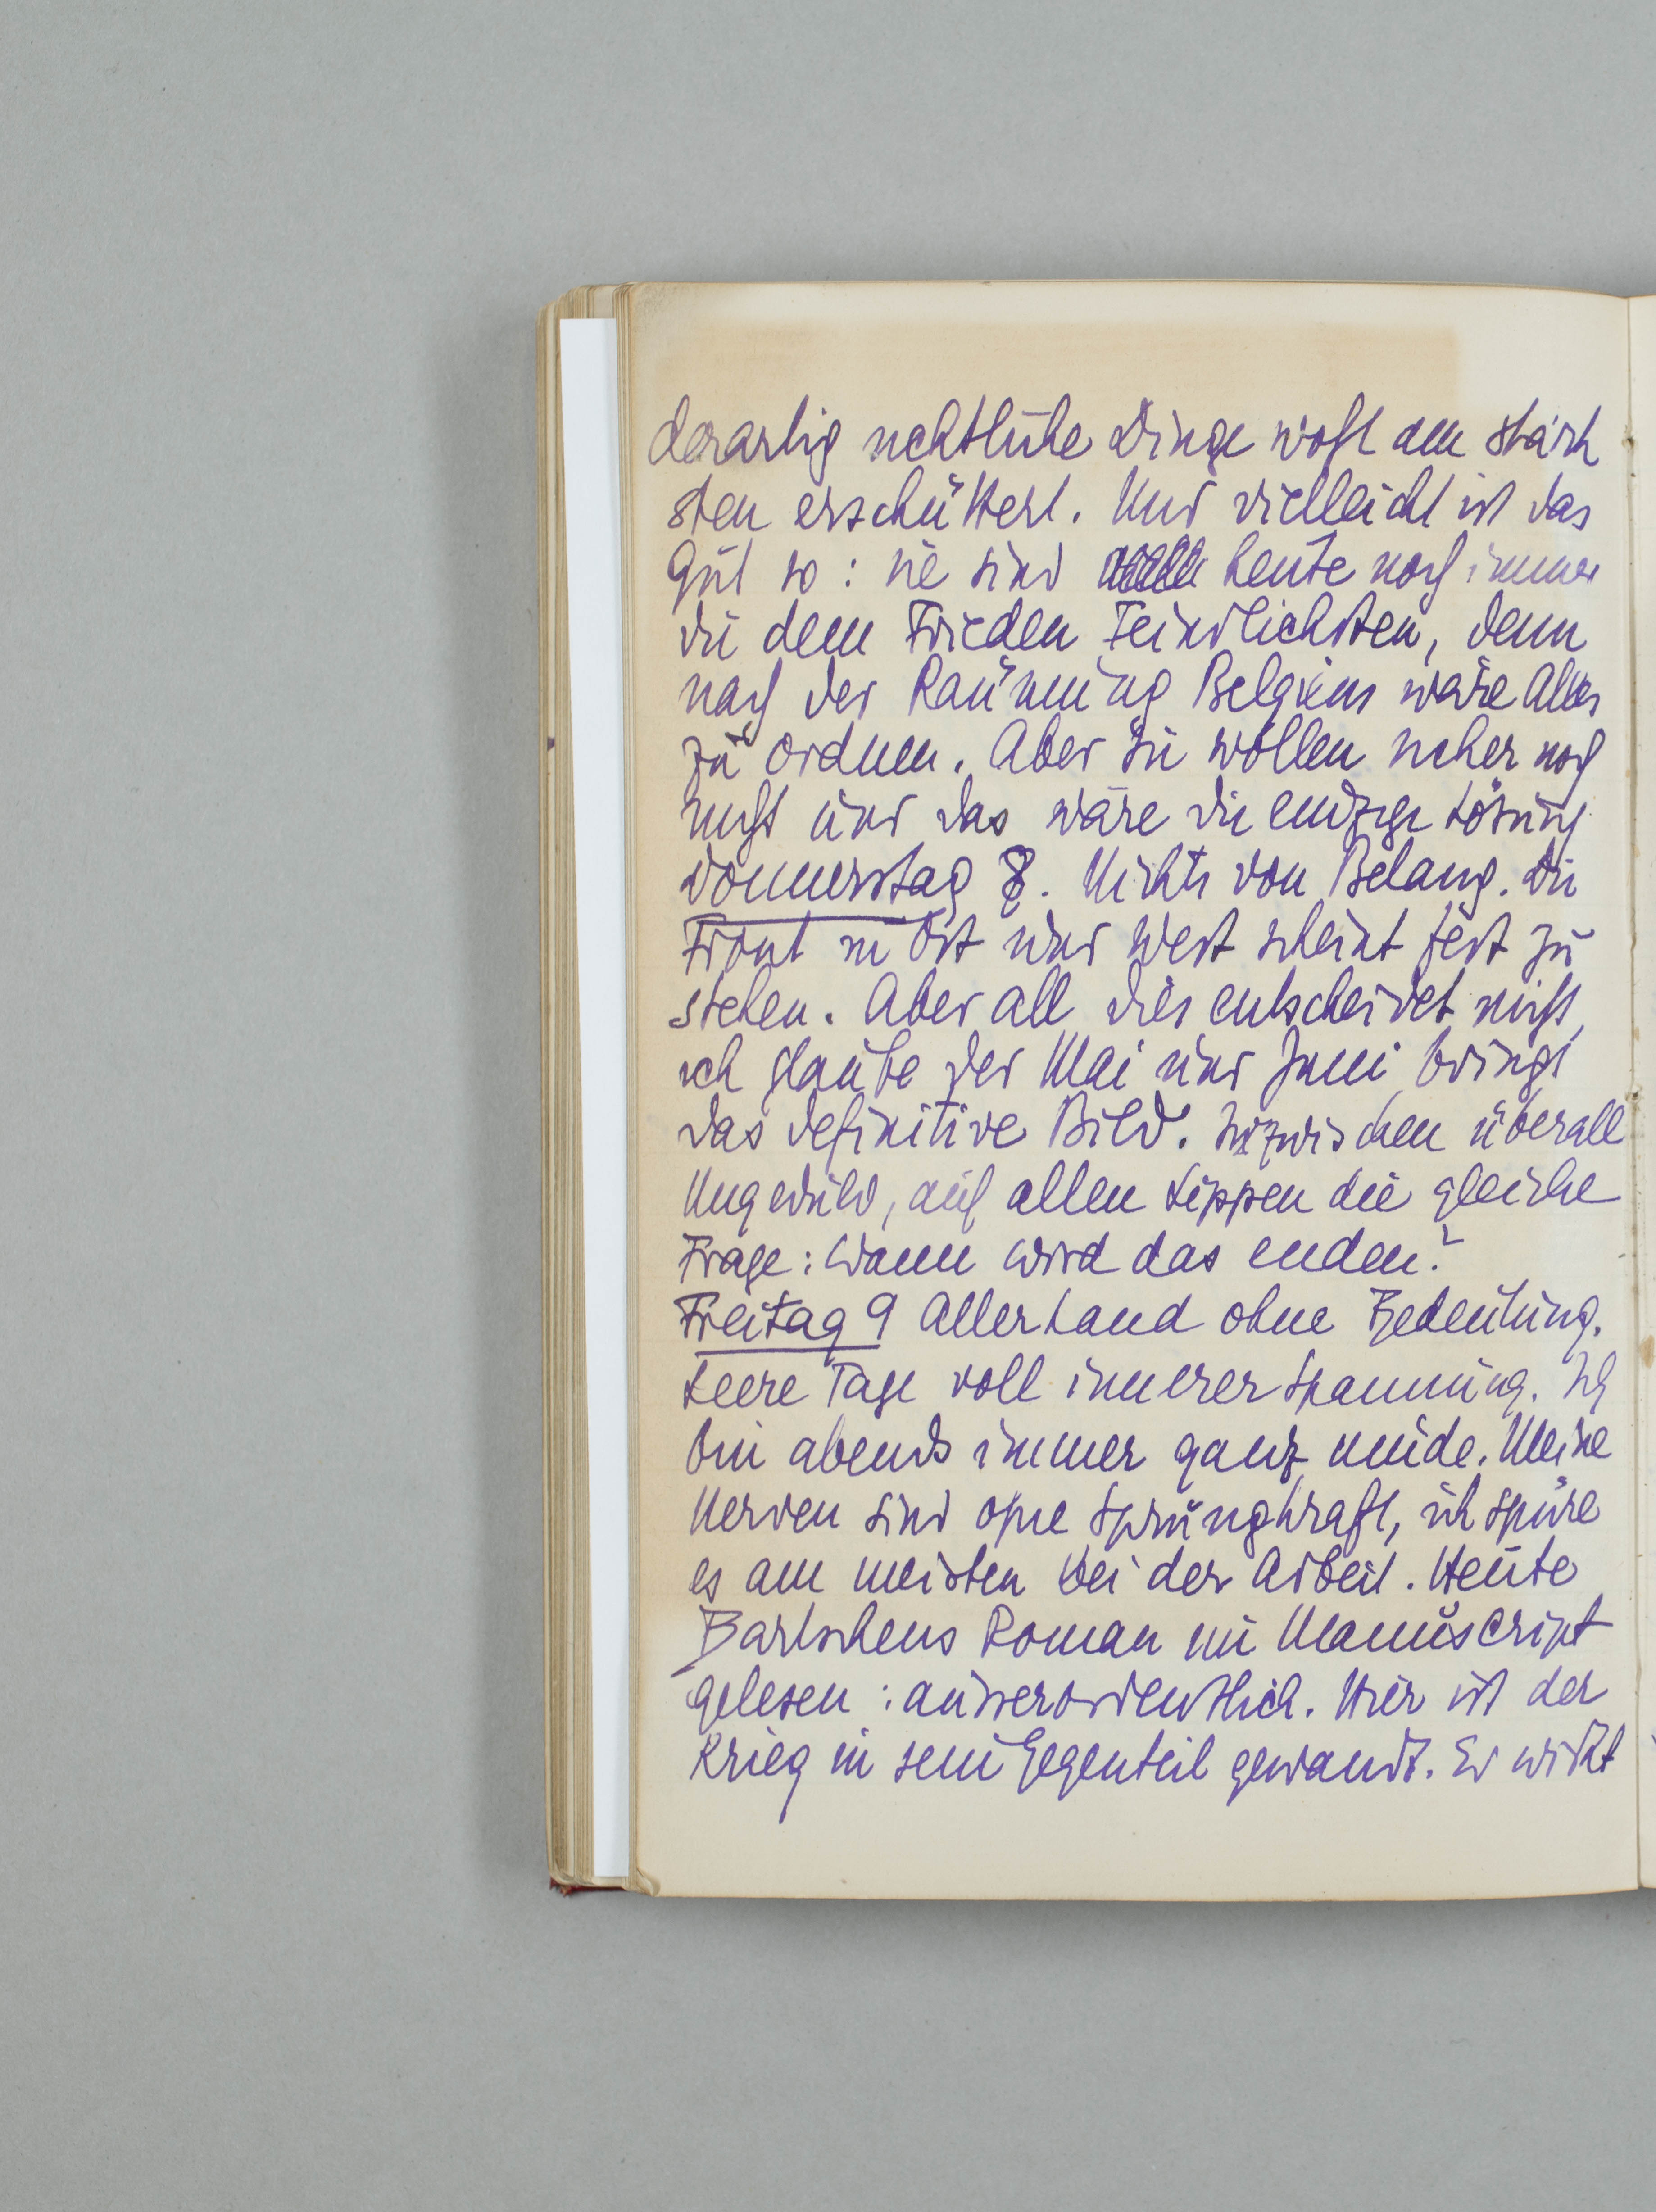 derartig rechtliche Dinge wohl am stärk
sten erschüttert. Und vielleicht ist das
Gut so: sie sind heute noch immer
die dem Frieden Feindlichsten, denn
nach der Räumung Belgiens wäre Alles
zu ordnen. Aber sie wollen sicher noch
nicht und das wäre die einzige Lösung
Donnerstag 8. Nichts von Belang. Die
Front in Ost und West scheint fest zu
stehen. Aber all dies entscheidet nicht,
ich glaube der Mai und Juni bringt
das definitive Bild. Inzwischen überall
Ungeduld, auf allen Lippen die gleiche
Frage: Wann wird das enden?
Freitag 9 Allerhand ohne Bedeutung.
Leere Tage voll innerer Spannung. Ich
bin abends immer ganz müde. Meine
Nerven sind ohne Sprungkraft, ich spüre
es am meisten bei der Arbeit. Heute
Bartschens Roman im Manuscript
gelesen: ausserordentlich. Hier ist der
Krieg in sein Gegenteil gewandt. Er wirkt